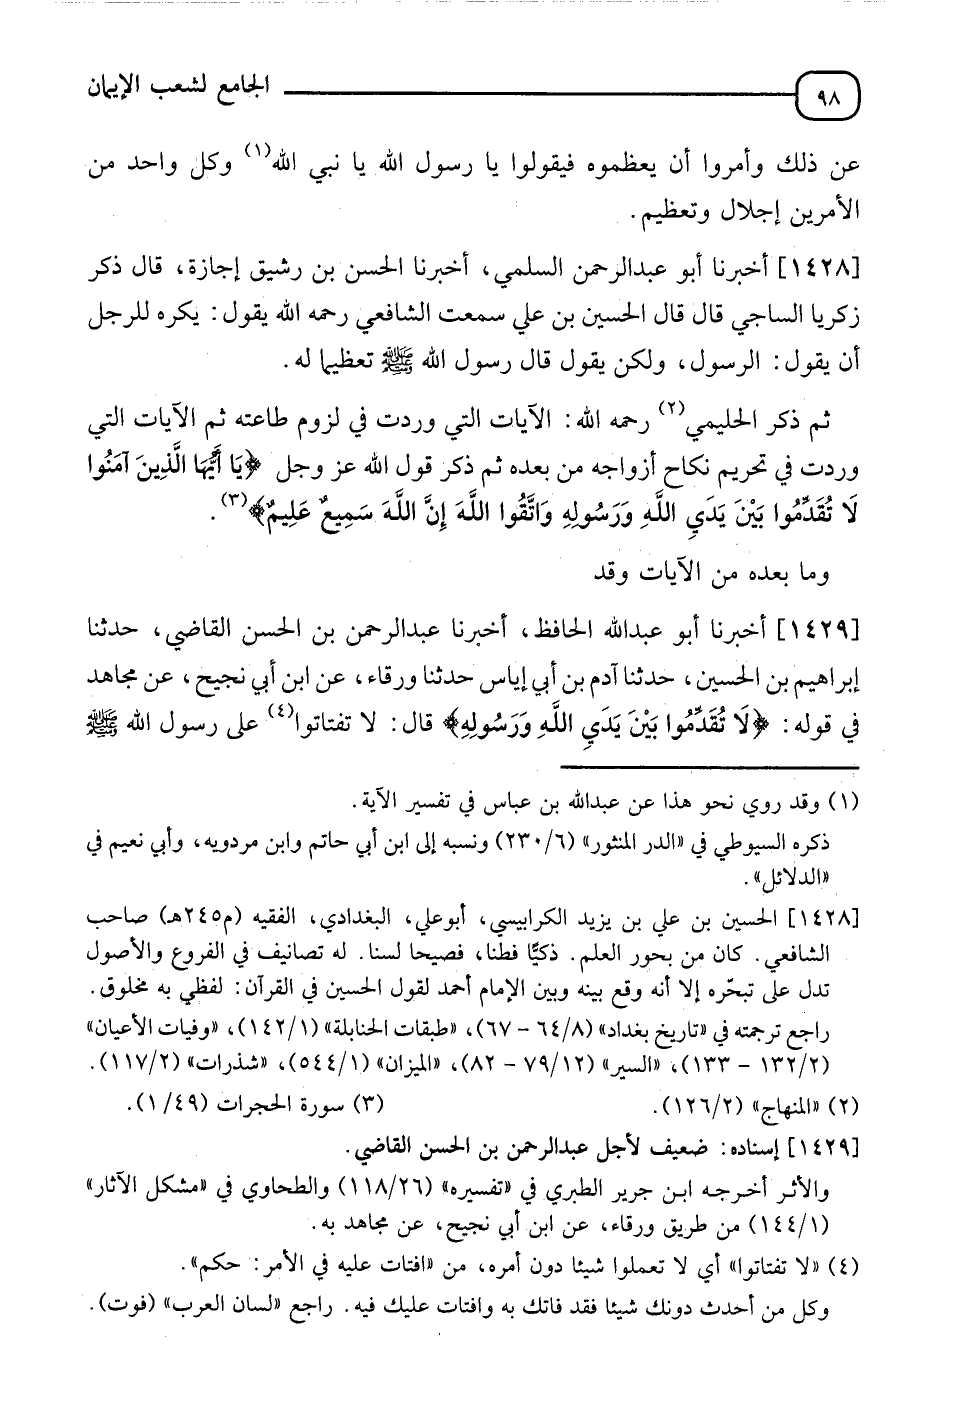 ٩٨ الجامع لشعب الإيمان
عن ذلك وأمروا أن يعظموه فيقولوا يا رسول الله يا نبي الله(١) وكل واحد من
الأمرين إجلال وتعظيم.
[١٤٢٨] أخبرنا أبو عبدالرحمن السلمي، أخبرنا الحسن بن رشيق إجازة، قال ذكر
زكريا الساجي قال قال الحسين بن علي سمعت الشافعي رحمه الله يقول: يكره للرجل
أن يقول: الرسول، ولكن يقول قال رسول الله ﷺ تعظيما له.
ثم ذكر الحليمي(٢) رحمه الله: الآيات التي وردت في لزوم طاعته ثم الآيات التي
وردت في تحريم نكاح أزواجه من بعده ثم ذكر قول الله عز وجل ﴿يَا أَيُّهَا الَّذِينَ آمَنُوا
لَا تُقَدِّمُوا بَيْنَ يَدَيِ اللَّهِ وَرَسُولِهِ وَاتَّقُوا اللَّهَ إِنَّ اللَّهَ سَمِيعٌ عَلِيمٌ﴾(٣).
وما بعده من الآيات وقد
[١٤٢٩] أخبرنا أبو عبدالله الحافظ، أخبرنا عبدالرحمن بن الحسن القاضي، حدثنا
إبراهيم بن الحسين، حدثنا آدم بن أبي إياس حدثنا ورقاء، عن ابن أبي نجيح، عن مجاهد
في قوله: ﴿لَا تُقَدِّمُوا بَيْنَ يَدَيِ اللَّهِ وَرَسُولِهِ﴾ قال: لا تفتاتوا(٤) على رسول الله ﷺ
(١) وقد روي نحو هذا عن عبدالله بن عباس في تفسير الآية.
ذكره السيوطي في «الدر المنثور» (٢٣٠/٦) ونسبه إلى ابن أبي حاتم وابن مردويه، وأبي نعيم في
«الدلائل».
[١٤٢٨] الحسين بن علي بن يزيد الكرابيسي، أبوعلي، البغدادي، الفقيه (م٢٤٥هـ) صاحب
الشافعي. كان من بحور العلم. ذكيًّا فطنا، فصيحا لسنا. له تصانيف في الفروع والأصول
تدل على تبحّره إلا أنه وقع بينه وبين الإمام أحمد لقول الحسين في القرآن: لفظي به مخلوق.
راجع ترجمته في «تاريخ بغداد» (٦٤/٨ - ٦٧)، «طبقات الحنابلة» (١٤٢/١)، «وفيات الأعيان»
(١٣٢/٢ - ١٣٣)، «السير» (٧٩/١٢ - ٨٢)، «الميزان» (٥٤٤/١)، «شذرات» (١١٧/٢).
(٢) «المنهاج» (١٢٦/٢). (٣) سورة الحجرات (١/٤٩).
[١٤٢٩] إسناده: ضعيف لأجل عبدالرحمن بن الحسن القاضي.
والأثر أخرجه ابن جرير الطبري في «تفسيره» (١١٨/٢٦) والطحاوي في «مشكل الآثار»
(١٤٤/١) من طريق ورقاء، عن ابن أبي نجيح، عن مجاهد به.
(٤) «لا تفتاتوا» أي لا تعملوا شيئا دون أمره، من «افتات عليه في الأمر: حكم».
وكل من أحدث دونك شيئا فقد فاتك به وافتات عليك فيه. راجع «لسان العرب» (فوت).